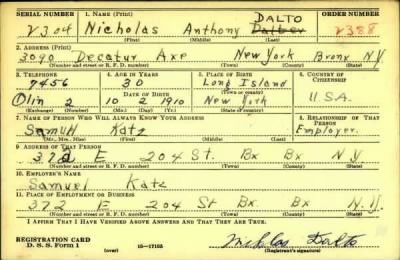 SERIAL NUMBER 1. NAME (Print) ORDER NUMBER
DALTO
V304 Nicholas Anthony Dalber V388
(First) (Middle) (Last)
2. ADDRESS (Print)
3090 Decatur Ave New York Bronx NY
(Number and street or R. F. D. number) (Town) (County) (State)
3. TELEPHONE 4. AGE IN YEARS 5. PLACE OF BIRTH 6. COUNTRY OF CITIZENSHIP
7456 30 Long Island
(Town or county)
DATE OF BIRTH
Olin 2 10 2 1910 New York U.S.A.
(Exchange) (Number) (Mo.) (Day) (Yr.) (State or country)
7. NAME OF PERSON WHO WILL ALWAYS KNOW YOUR ADDRESS 8. RELATIONSHIP OF THAT PERSON
Samuel Katz Employer.
(Mr., Mrs., Miss) (First) (Middle) (Last)
9. ADDRESS OF THAT PERSON
372 E 204 St. Bx Bx NY
(Number and street or R. F. D. number) (Town) (County) (State)
10. EMPLOYER'S NAME
Samuel Katz
11. PLACE OF EMPLOYMENT OR BUSINESS
372 E 204 St Bx. Bx N.Y.
(Number and street or R. F. D. number) (Town) (County) (State)
I AFFIRM THAT I HAVE VERIFIED ABOVE ANSWERS AND THAT THEY ARE TRUE.
REGISTRATION CARD
D. S. S. Form 1 (over) 16—17105 Dalto
(Registrant's signature)